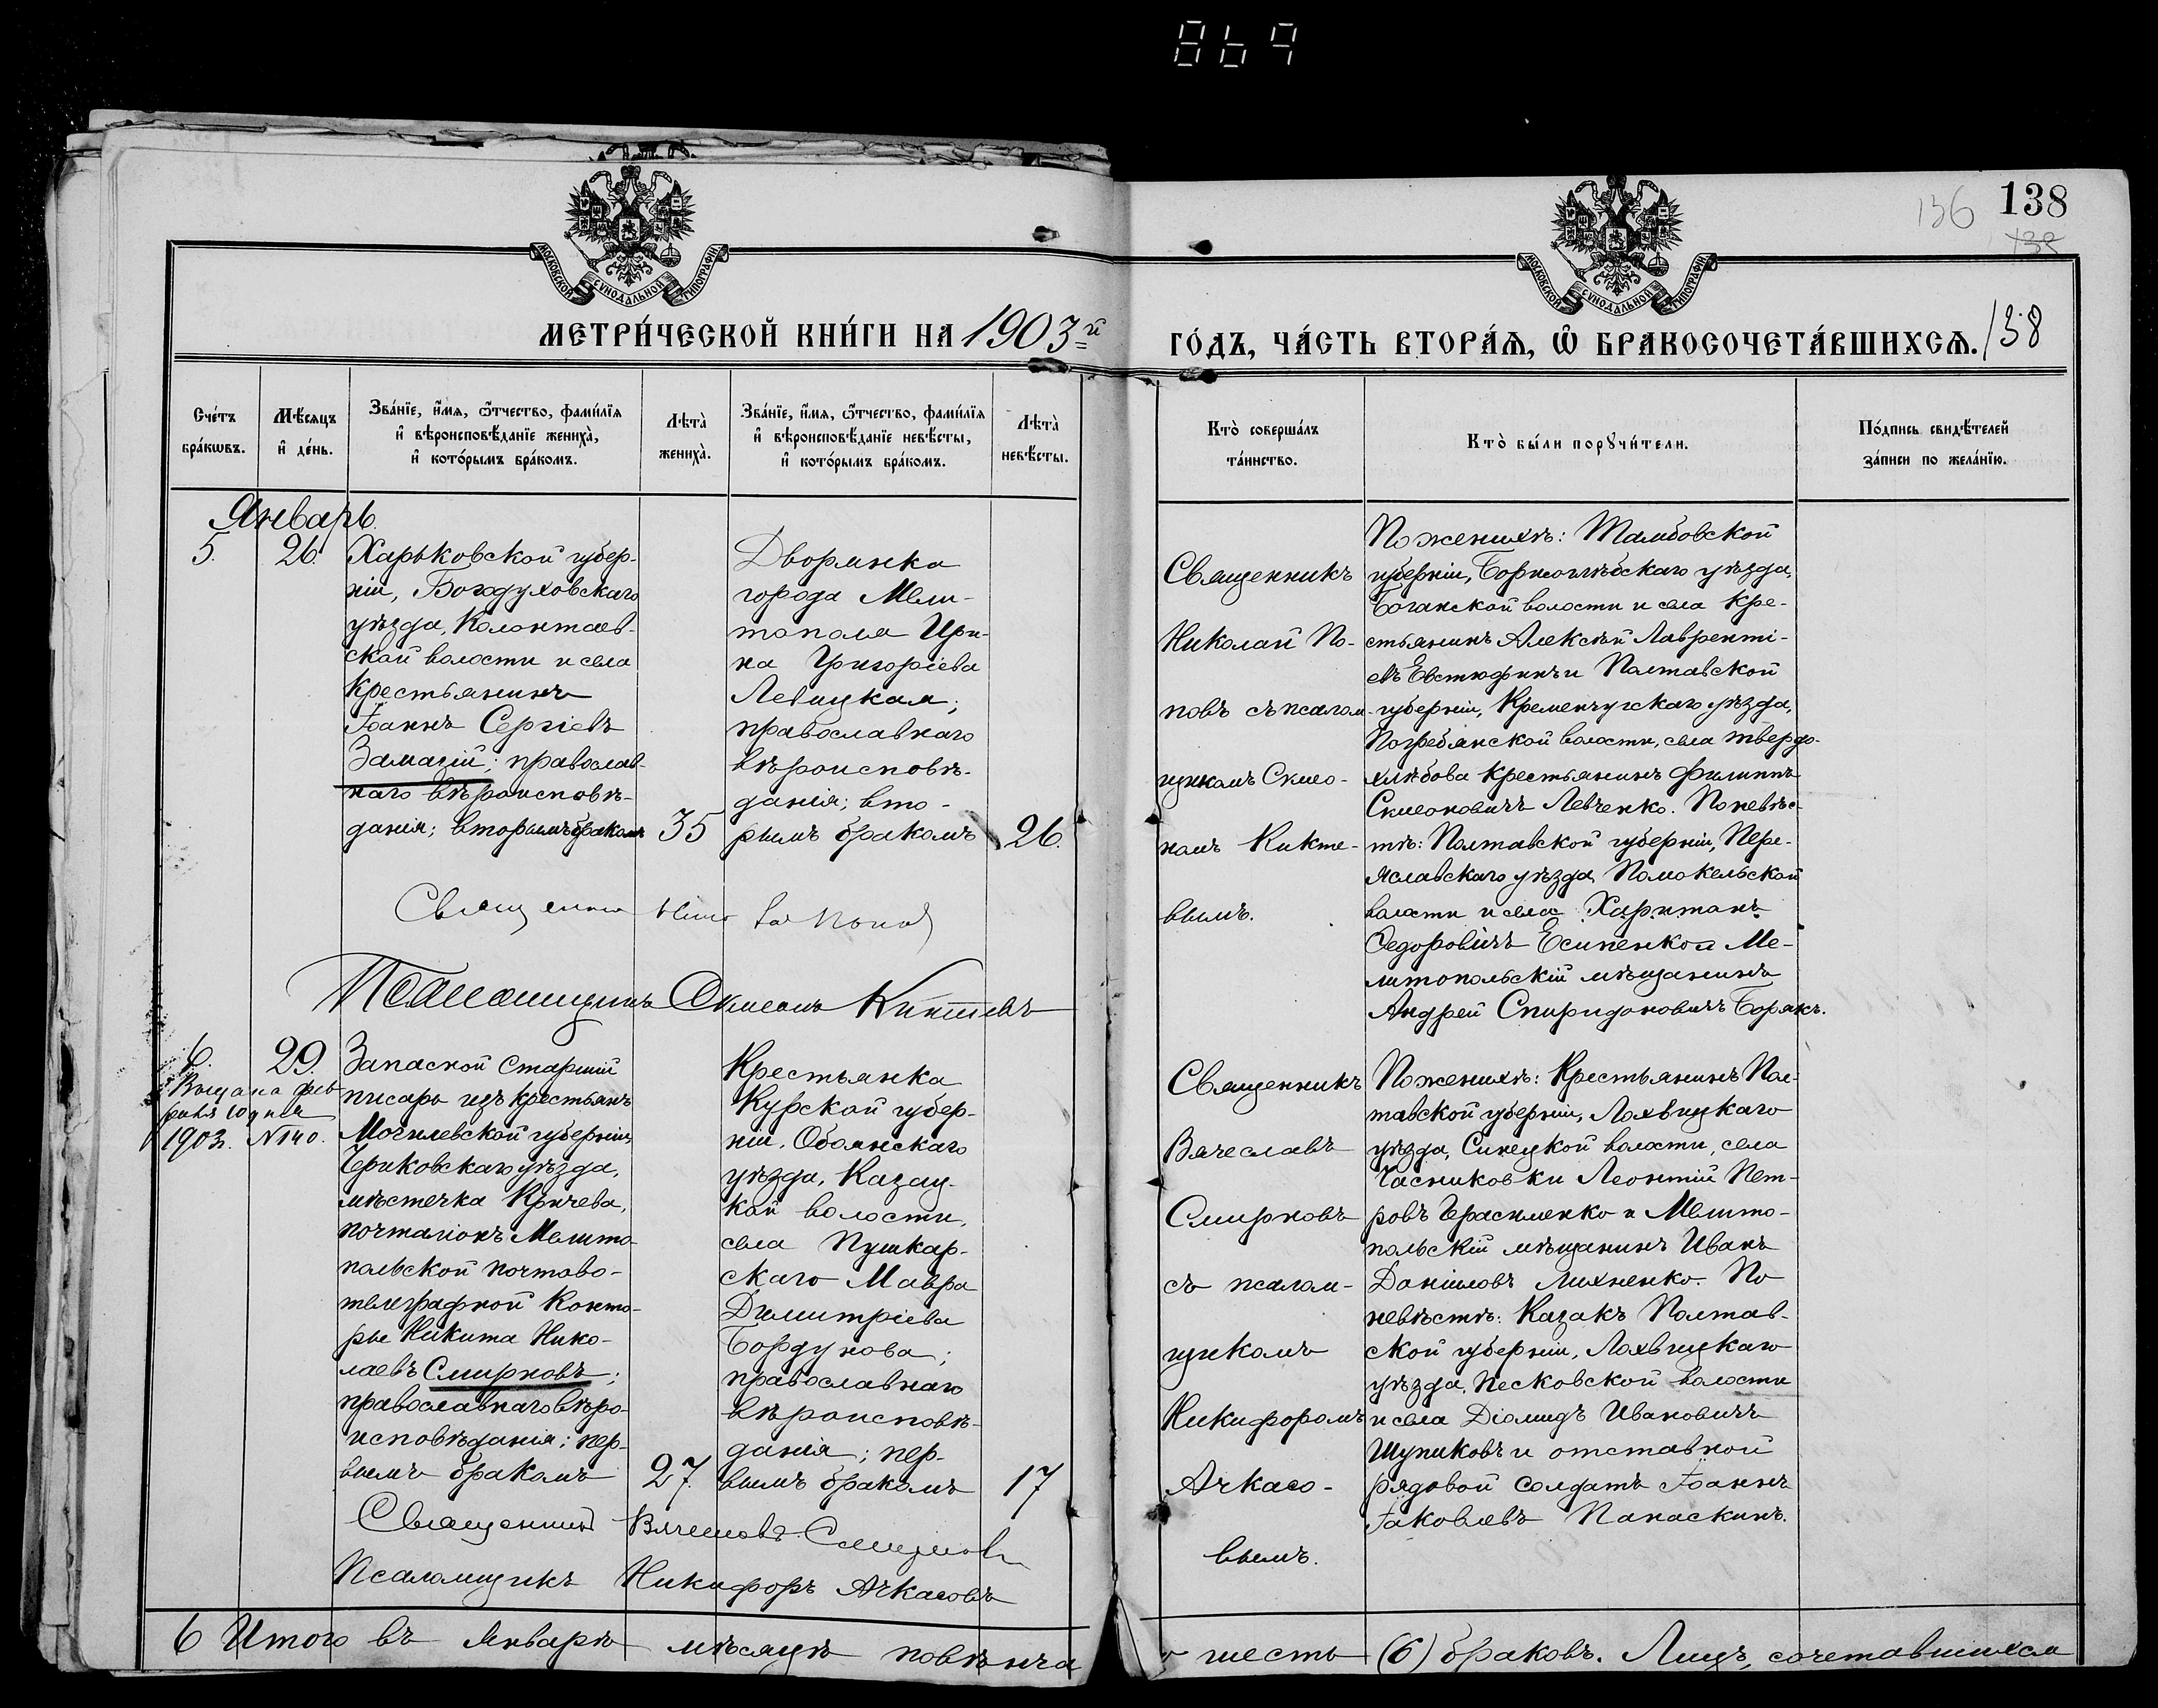 869
136
138
132
МОСКОВСКОЙ СѴНОДАЛЬНОЙ ТИПОГРАФІИ
МОСКОВСКОЙ СѴНОДАЛЬНОЙ ТИПОГРАФІИ
МЕТРИ́ЧЕСКОЙ КНИ́ГИ НА 1903-й
ГО́ДЪ, ЧА́СТЬ ВТОРА́Я, Ѽ БРАКОСОЧЕТА́ВШИХСѦ. 138
Сче́тъ
бра́кѡвъ.
Мѣ́сяцъ
и҆ де́нь.
Зва́нїе, и҆́мя, ѻ҆́тчество, фами́лїя
и҆ вѣроисповѣ́данїе жениха̀,
и҆ кото́рымъ бра́комъ.
Лѣта̀
жениха̀.
Зва́нїе, и҆́мя, ѻ҆́тчество, фами́лїя
и҆ вѣроисповѣ́данїе невѣ́сты,
и҆ кото́рымъ бра́комъ.
Лѣта̀
невѣ́сты.
Кто̀ соверша́лъ
та́инство.
Кто̀ бы́ли порꙋчи́тели.
По́дпись свидѣ́телей
за́писи по жела́нїю.
Январь.
5.
26.
Харьковской губер-
ніи, Богодуховскаго
уѣзда, Колонтаев-
ской волости и села
крестьянинъ
Іоаннъ Сергіевъ
Замагій; православ-
наго вѣроисповѣ-
данія; вторымъ бракомъ
35
Дворянка
города Мели-
тополя Ири-
на Григоріева
Левицкая;
православнаго
вѣроисповѣ-
данія; вто-
рымъ бракомъ
26.
Священникъ
Николай По-
повъ съ псалом-
щикомъ Симео-
номъ Никте-
вымъ.
По женихѣ: Тамбовской
губерніи, Борисоглѣбскаго уѣзда,
Боганской волости и села кре-
стьянинъ Алексѣй Лавренті-
евъ Евстюфинъ и Полтавской
губерніи, Кременчугскаго уѣзда,
Погребянской волости, села Твердо-
хлѣбова крестьянинъ Филиппъ
Симеоновичъ Левченко. По невѣс-
тѣ: Полтавской губерніи, Пере-
яславскаго уѣзда, Помокельской
волости и села Харитонъ
Ѳедоровичъ Есипенко и Ме-
литопольскій мѣщанинъ
Андрей Спиридоновичъ Борякъ.
Священникъ Николай Поповъ
Псаломщикъ Симеонъ Никтевъ
6.
29.
Выдана фев
раля 10 дня
1903г. №140.
Запасной старшій
писарь изъ крестьянъ
Могилевской губерніи,
Чериковскаго уѣзда,
мѣстечка Кричева,
почталіонъ Мелито-
польской почтово-
телеграфной конто-
ры Никита Нико-
лаевъ Смирновъ;
православнаго вѣро-
исповѣданія; пер-
вымъ бракомъ
27.
Крестьянка
Курской губер-
ніи, Обоянскаго
уѣзда, Казац-
кой волости,
села Пушкар-
скаго Мавра
Димитріева
Бордунова;
православнаго
вѣроисповѣ-
данія; пер-
вымъ бракомъ
17
Священникъ
Вячеславъ
Смирновъ
съ псалом-
щикомъ
Никифоромъ
Ачкасо-
вымъ.
По женихѣ: Крестьянинъ Пол-
тавской губерніи, Лохвицкаго
уѣзда, Синецкой волости, села
Часниковки Леонтій Пет-
ровъ Герасименко и Мелито-
польскій мѣщанинъ Иванъ
Даніиловъ Михненко. По
невѣстѣ: Казакъ Полтав-
ской губерніи, Лохвицкаго
уѣзда, Песковской волости
и села Діомидъ Ивановичъ
Шупиковъ и отставной
рядовой солдатъ Іоаннъ
Іаковлевъ Панаскинъ.
Священникъ Вячеславъ Смирновъ
Псаломщикъ Никифоръ Ачкасовъ
6 Итого въ Январѣ мѣсяцѣ повѣнча
о шесть (6) браковъ. Лицъ, сочетавшихся